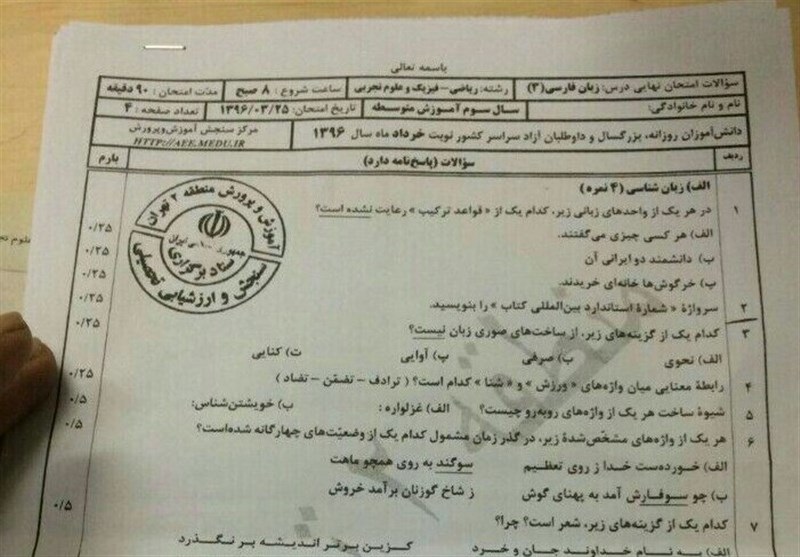 باسمه تعالی
سؤالات امتحان نهایی درس: زبان فارسی (۳) رشته: ریاضی - فیزیک و علوم تجربی ساعت شروع: ۸ صبح مدّت امتحان: ۹۰ دقیقه
نام و نام خانوادگی: سال سوم آموزش متوسطه تاریخ امتحان: ۱۳۹۶/۰۳/۲۵ تعداد صفحه: ۴
دانش‌آموزان روزانه، بزرگسال و داوطلبان آزاد سراسر کشور نوبت خرداد ماه سال ۱۳۹۶ مرکز سنجش آموزش وپرورش
HTTP://AEE.MEDU.IR
ردیف سؤالات (پاسخ‌نامه دارد) بارم
الف) زبان شناسی (۴ نمره)
۱ در هر یک از واحدهای زبانی زیر، کدام یک از «قواعد ترکیب» رعایت نشده است؟
الف) هر کسی چیزی می‌گفتند. ۰/۲۵
ب) دانشمند دو ایرانی آن ۰/۲۵
پ) خرگوش‌ها خانه‌ای خریدند. ۰/۲۵
۲ سرواژهٔ «شمارهٔ استاندارد بین‌المللی کتاب» را بنویسید. ۰/۲۵
۳ کدام یک از گزینه‌های زیر، از ساخت‌های صوری زبان نیست؟ ۰/۲۵
الف) نحوی ب) صرفی پ) آوایی ت) کنایی
۴ رابطهٔ معنایی میان واژه‌های «ورزش» و «شنا» کدام است؟ (ترادف - تضمّن - تضاد) ۰/۲۵
۵ شیوهٔ ساخت هر یک از واژه‌های روبه‌رو چیست؟ الف) غزلواره: ب) خویشتن‌شناس: ۰/۵
۶ هر یک از واژه‌های مشخّص‌شدهٔ زیر، در گذر زمان مشمول کدام یک از وضعیّت‌های چهارگانه شده‌است؟ ۰/۵
الف) خورده‌ست خدا ز روی تعظیم سوگند به روی همچو ماهت
ب) چو سوفارش آمد به پهنای گوش ز شاخ گوزنان برآمد خروش
۷ کدام یک از گزینه‌های زیر، شعر است؟ چرا؟ ۰/۵
الف) به نام خداوند جان و خرد کزین برتر اندیشه بر نگذرد
آموزش و پرورش منطقه ۲ تهران
ستاد برگزاری
سنجش و ارزشیابی تحصیلی
منطقه ۲